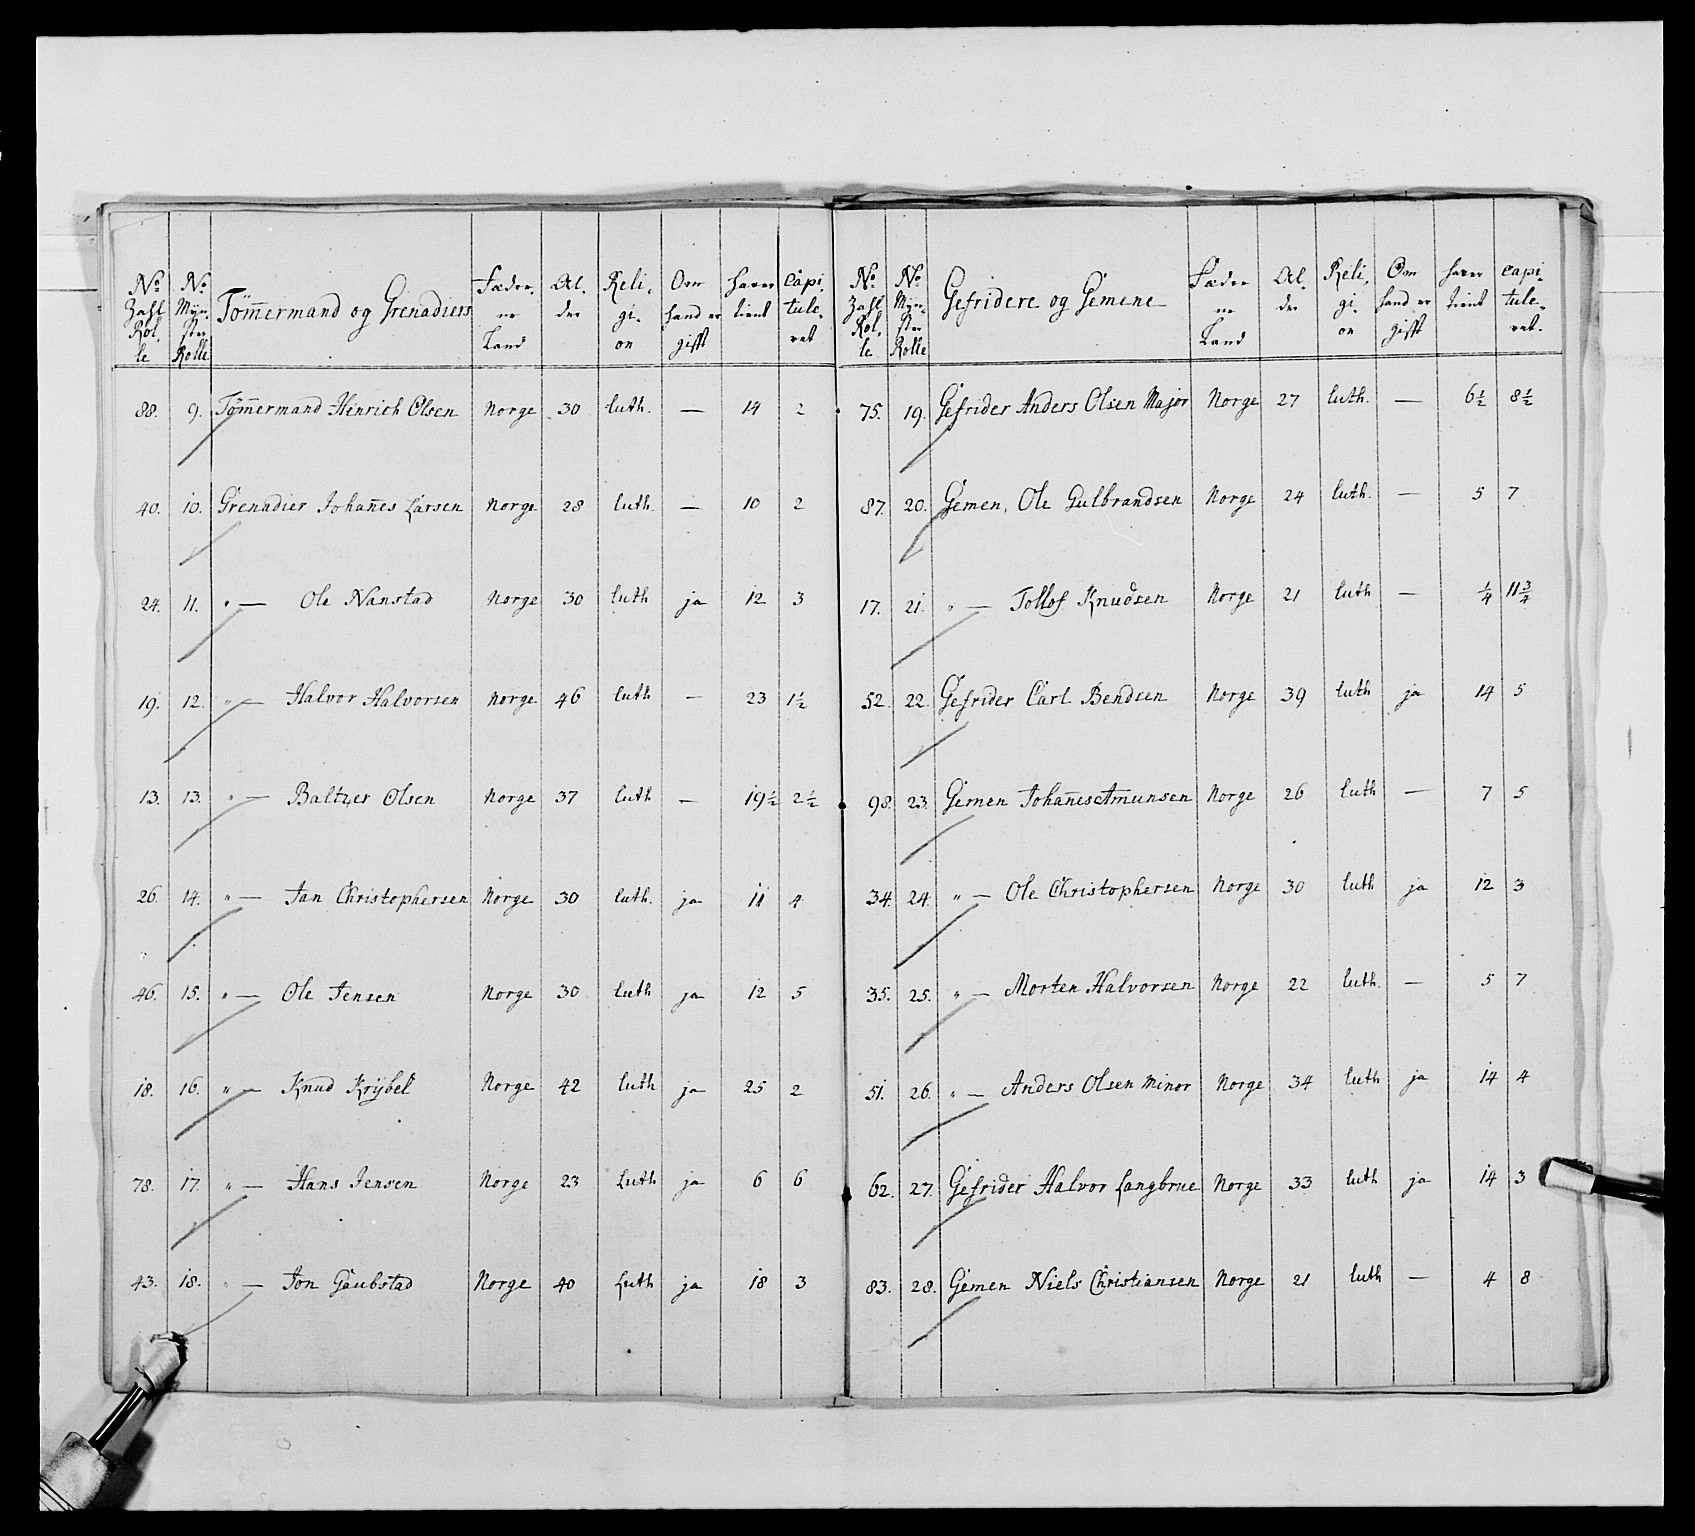 No Zahl Rol, le | No Mÿn, ster Rolle | Tøm̄ermand og Grenadiers | Fæder, ne Land | Al, der | Reli, gi, on | Om hand er gifft | haver tient | Capi, tule, ret
88. 9. Tøm̄ermand Hinrich Olsen Norge 30 luth. — 14 2
40. 10. Grenadier Johan̄es Larsen Norge 28 luth. — 10 2
24. 11. " — Ole Nanstad Norge 30 luth ja 12 3
19. 12. " — Halvor Halvorsen Norge 46 luth — 23 1½
13. 13. " — Baltzer Olsen Norge 37 luth — 19½ 2½
26. 14. " — Jan Christophersen Norge 30 luth. ja 11 4
46. 15. " — Ole Jensen Norge 30 luth ja 12 5
18. 16. " — Knud Krÿbel Norge 42 luth ja 25 2
78. 17. " — Hans Jensen Norge 23 Luth ja 6 6
43. 18. " — Jon Gaubstad Norge 40 Luth ja 18 3
No Zahl Rol, le | No Mÿn, ster Rolle | Gefridere og Gemene | Fæder ne Land | Al, der | Reli, gi, on | Om hand er gifft | haver tient | capi, tule, ret.
75. 19. Gefrider Anders Olsen Major Norge 27 luth. — 6½ 8½
87. 20. Gemen, Ole Gulbrandsen Norge 24 luth. — 5 7
17. 21. " — Tollof Knudsen Norge 21 luth — ¼ 11¾
52. 22. Gefrider Carl Bendsen Norge 39 luth ja 14 5
98. 23. Gemen Johan̄es Amunsen Norge 26 luth — 7 5
34. 24. " — Ole Christophersen Norge 30 luth ja 12 3
35. 25. " — Morten Halvorsen Norge 22 luth. — 5 7
51. 26. " — Anders Olsen Minor Norge 34 luth ja 14 4
62. 27. Gefrider Halvor Langbrue Norge 33 luth ja 14 3
83. 28. Gemen Niels Christiansen Norge 21 luth — 4 8